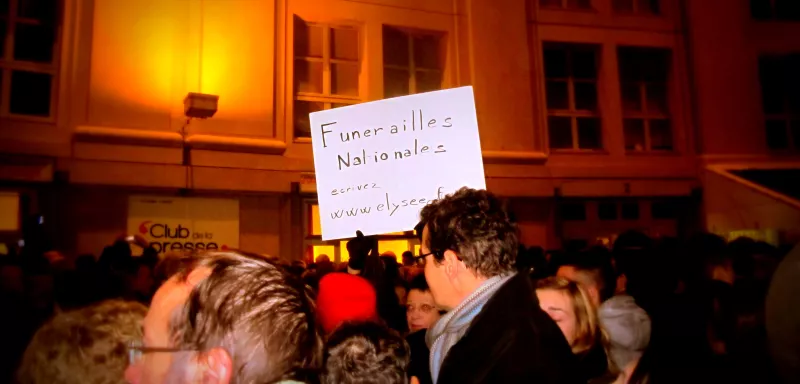 Funerailles
Nationales
ecrivez
www.elysee.f
Club de la
presse